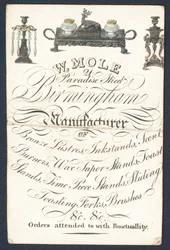 W. MOLE
Paradise Street
Birmingham
Manufacturer
OF
Bronze Lustres, Inkstands, Scent
Burners, Wax Taper Stands, Toast
Stands, Time Piece Stands, Sliding
Toasting Forks, Brushes
&c. &c.
Orders attended to with Punctuality.